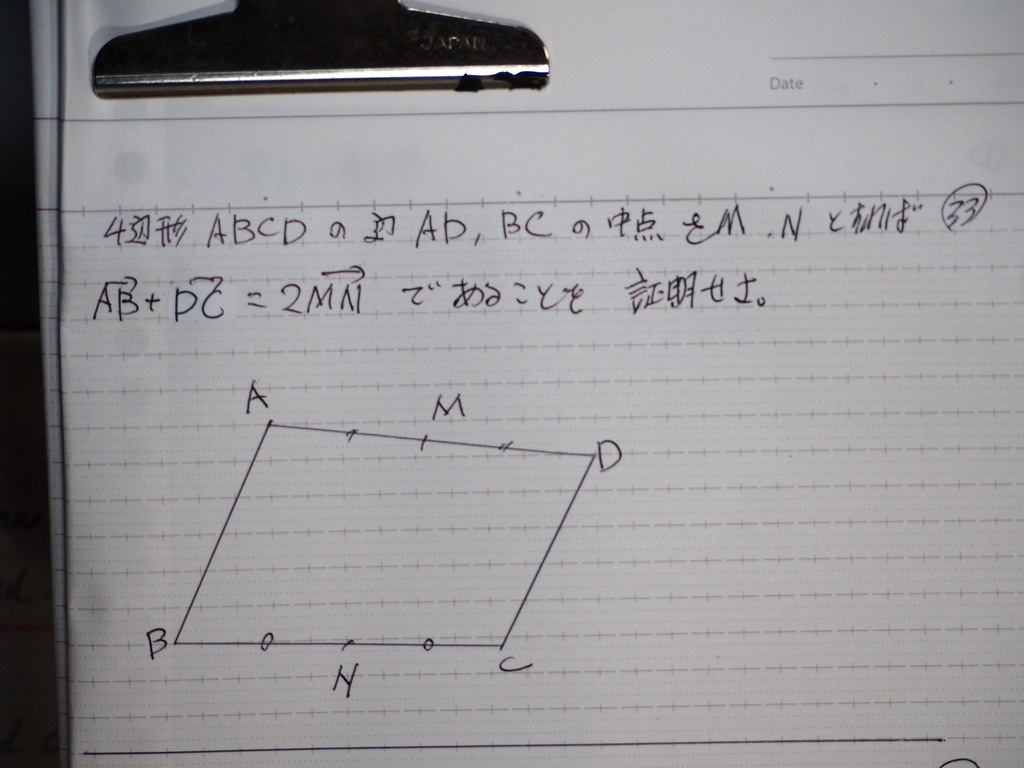 JAPAN
Date
4辺形 ABCD の 辺 AD, BC の 中点 を M, N とすれば ㉝
AB + DC = 2MN で あることを 証明せよ。
A
M
D
B
N
C